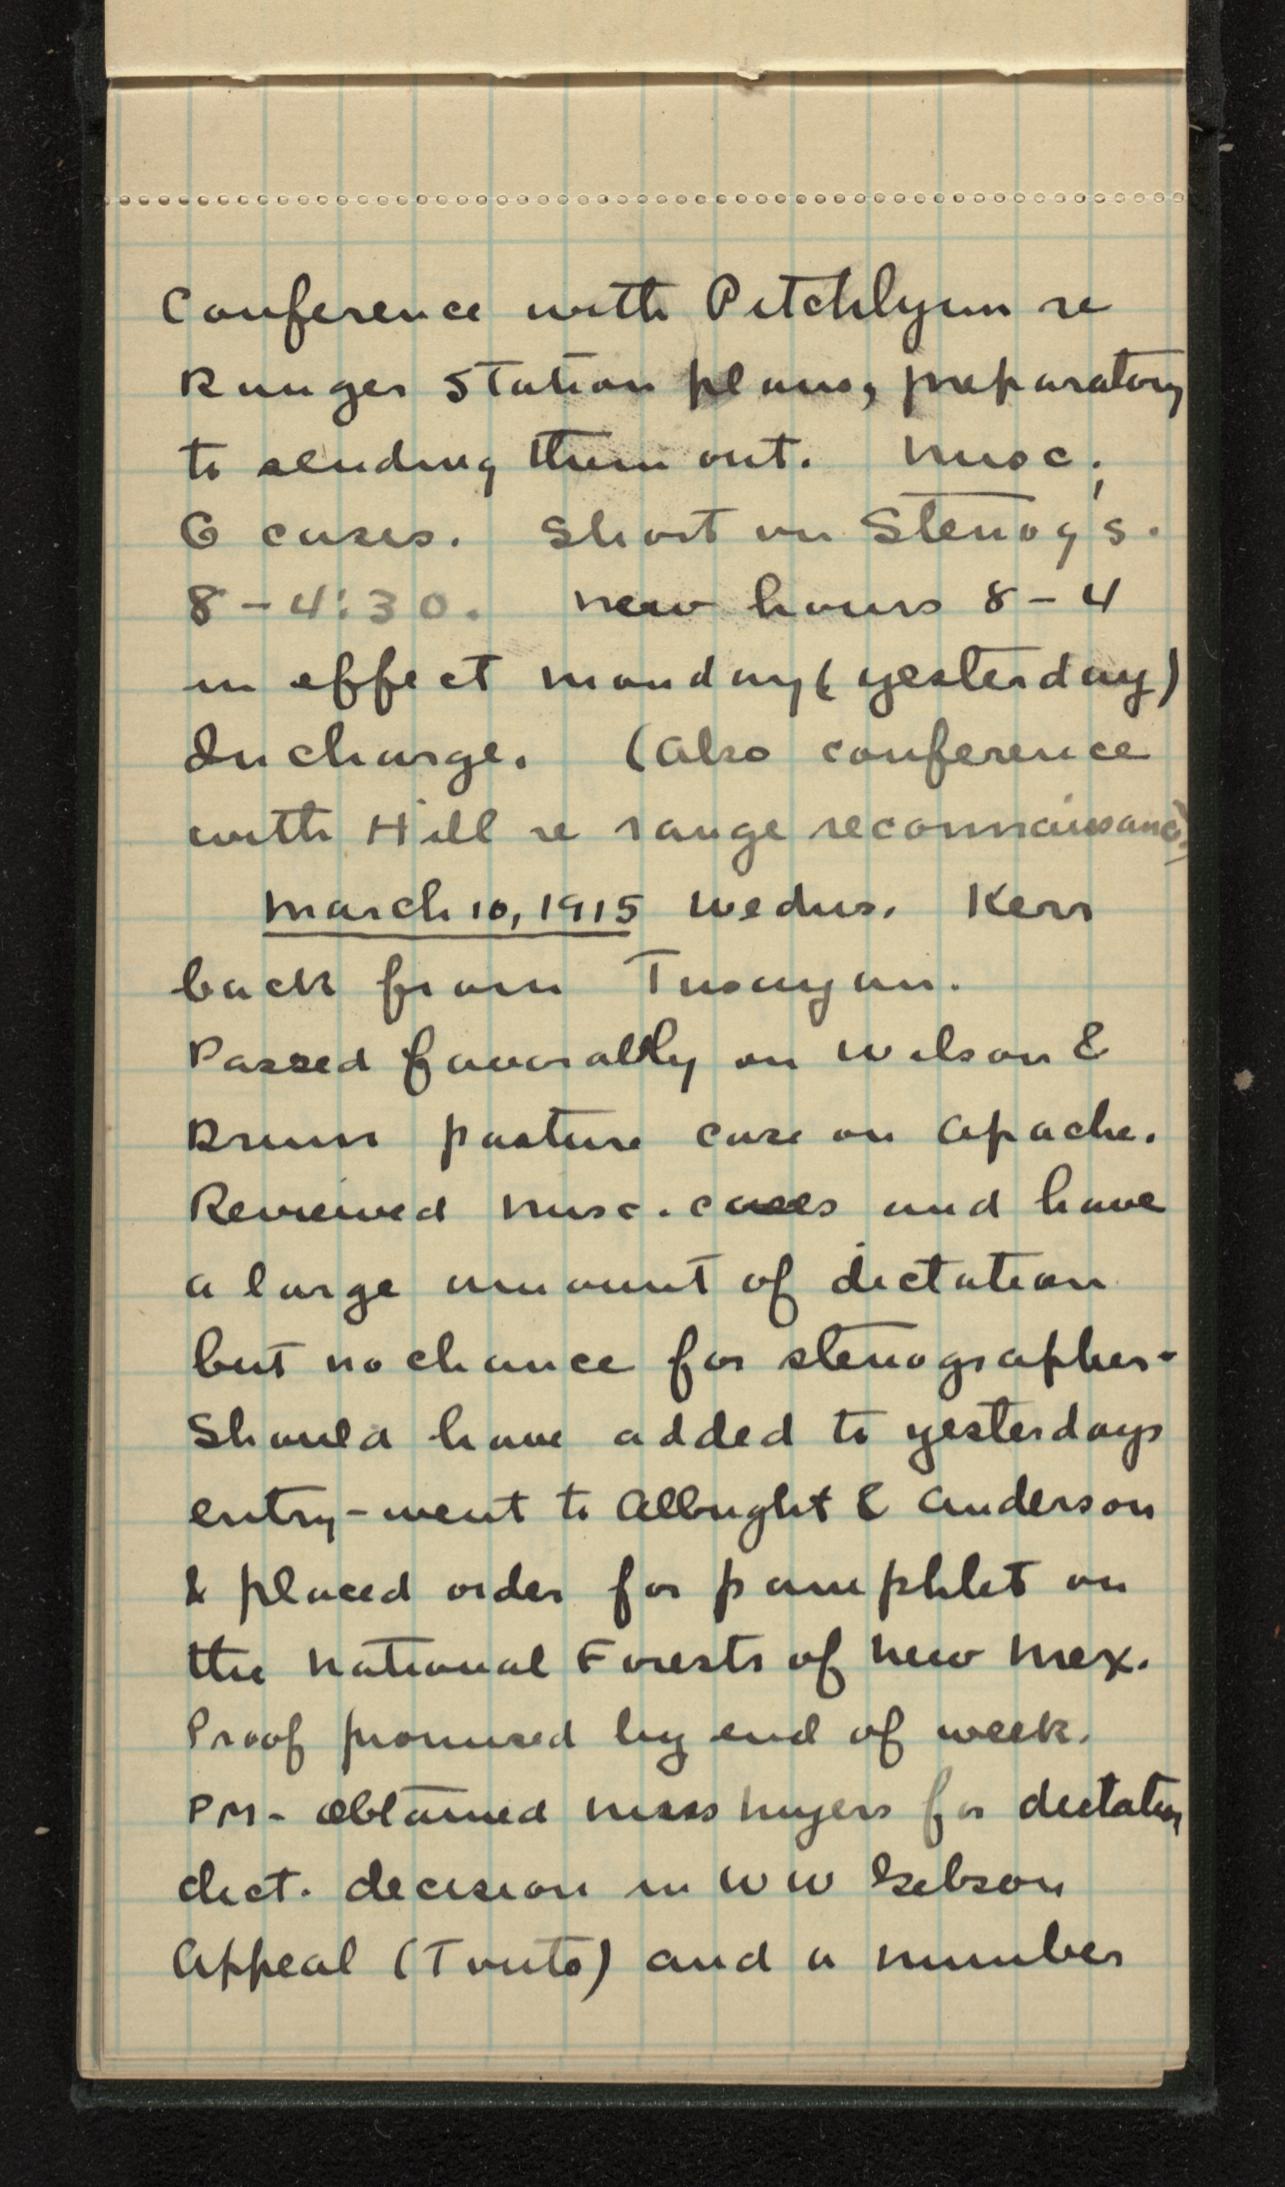 Conference with Pitchlynn re
Ranger Station plans, preparatory
to sending them out. Misc.
G cases. Short on Stenog's.
8-4:30. New hours 8-4
in effect Monday (yesterday)
In charge. (Also conference
with Hill re range reconnaissance).
March 10, 1915 Wednes. Kerr
back from Tusayan.
Passed favorably on Wilson &
pasture case on Apache.
Reviewed misc. cases and have
a large amount of dictation
but no chance for stenographer-
Should have added to yesterdays
entry-went to Albright & Anderson
& placed order for pamphlet on
the National Forests of New Mex.
Proof promised by end of week.
PM- Obtained Miss Myers for dictation
dict. decision in W W Gibson
Appeal (Tonto) and a number